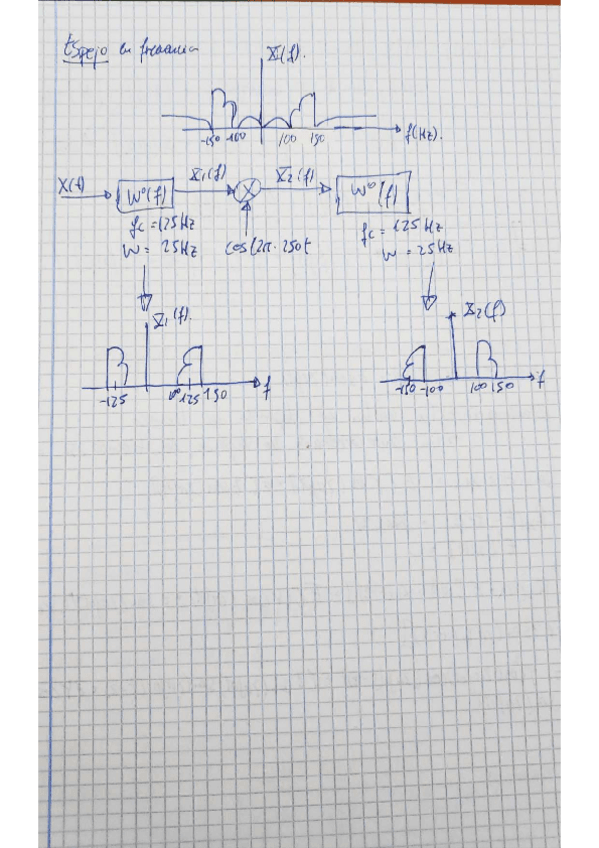 Espejo en frecuencia
X(f).
-150 -100 100 150 f(Hz).
X(t) W⁰(f) X₁(f) X X₂(f) W⁰(f)
fc = 125 Hz
W = 25 Hz
cos(2π·250t
fc = 125 Hz
W = 25 Hz
X₁(f).
-125 100 125 150 f
X₂(f)
-150 -100 100 150 f